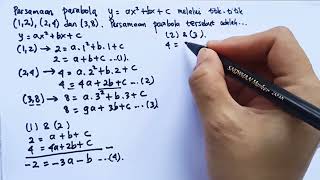 Persamaan parabola y = ax²+bx+c melalui titik-titik
(1,2), (2,4) dan (3,8). Persamaan parabola tersebut adalah...
y = ax²+bx+c
(1,2) → 2 = a.1²+b.1+c
2 = a+b+c ...(1).
(2,4) → 4 = a.2²+b.2+c
4 = 4a+2b+c ...(2).
(3,8) → 8 = a.3²+b.3+c
8 = 9a+3b+c ...(3).
(1) & (2)
2 = a+b+c
4 = 4a+2b+c
-2 = -3a-b ...(4).
(2) & (3).
4 =
SNOWMAN MARKER